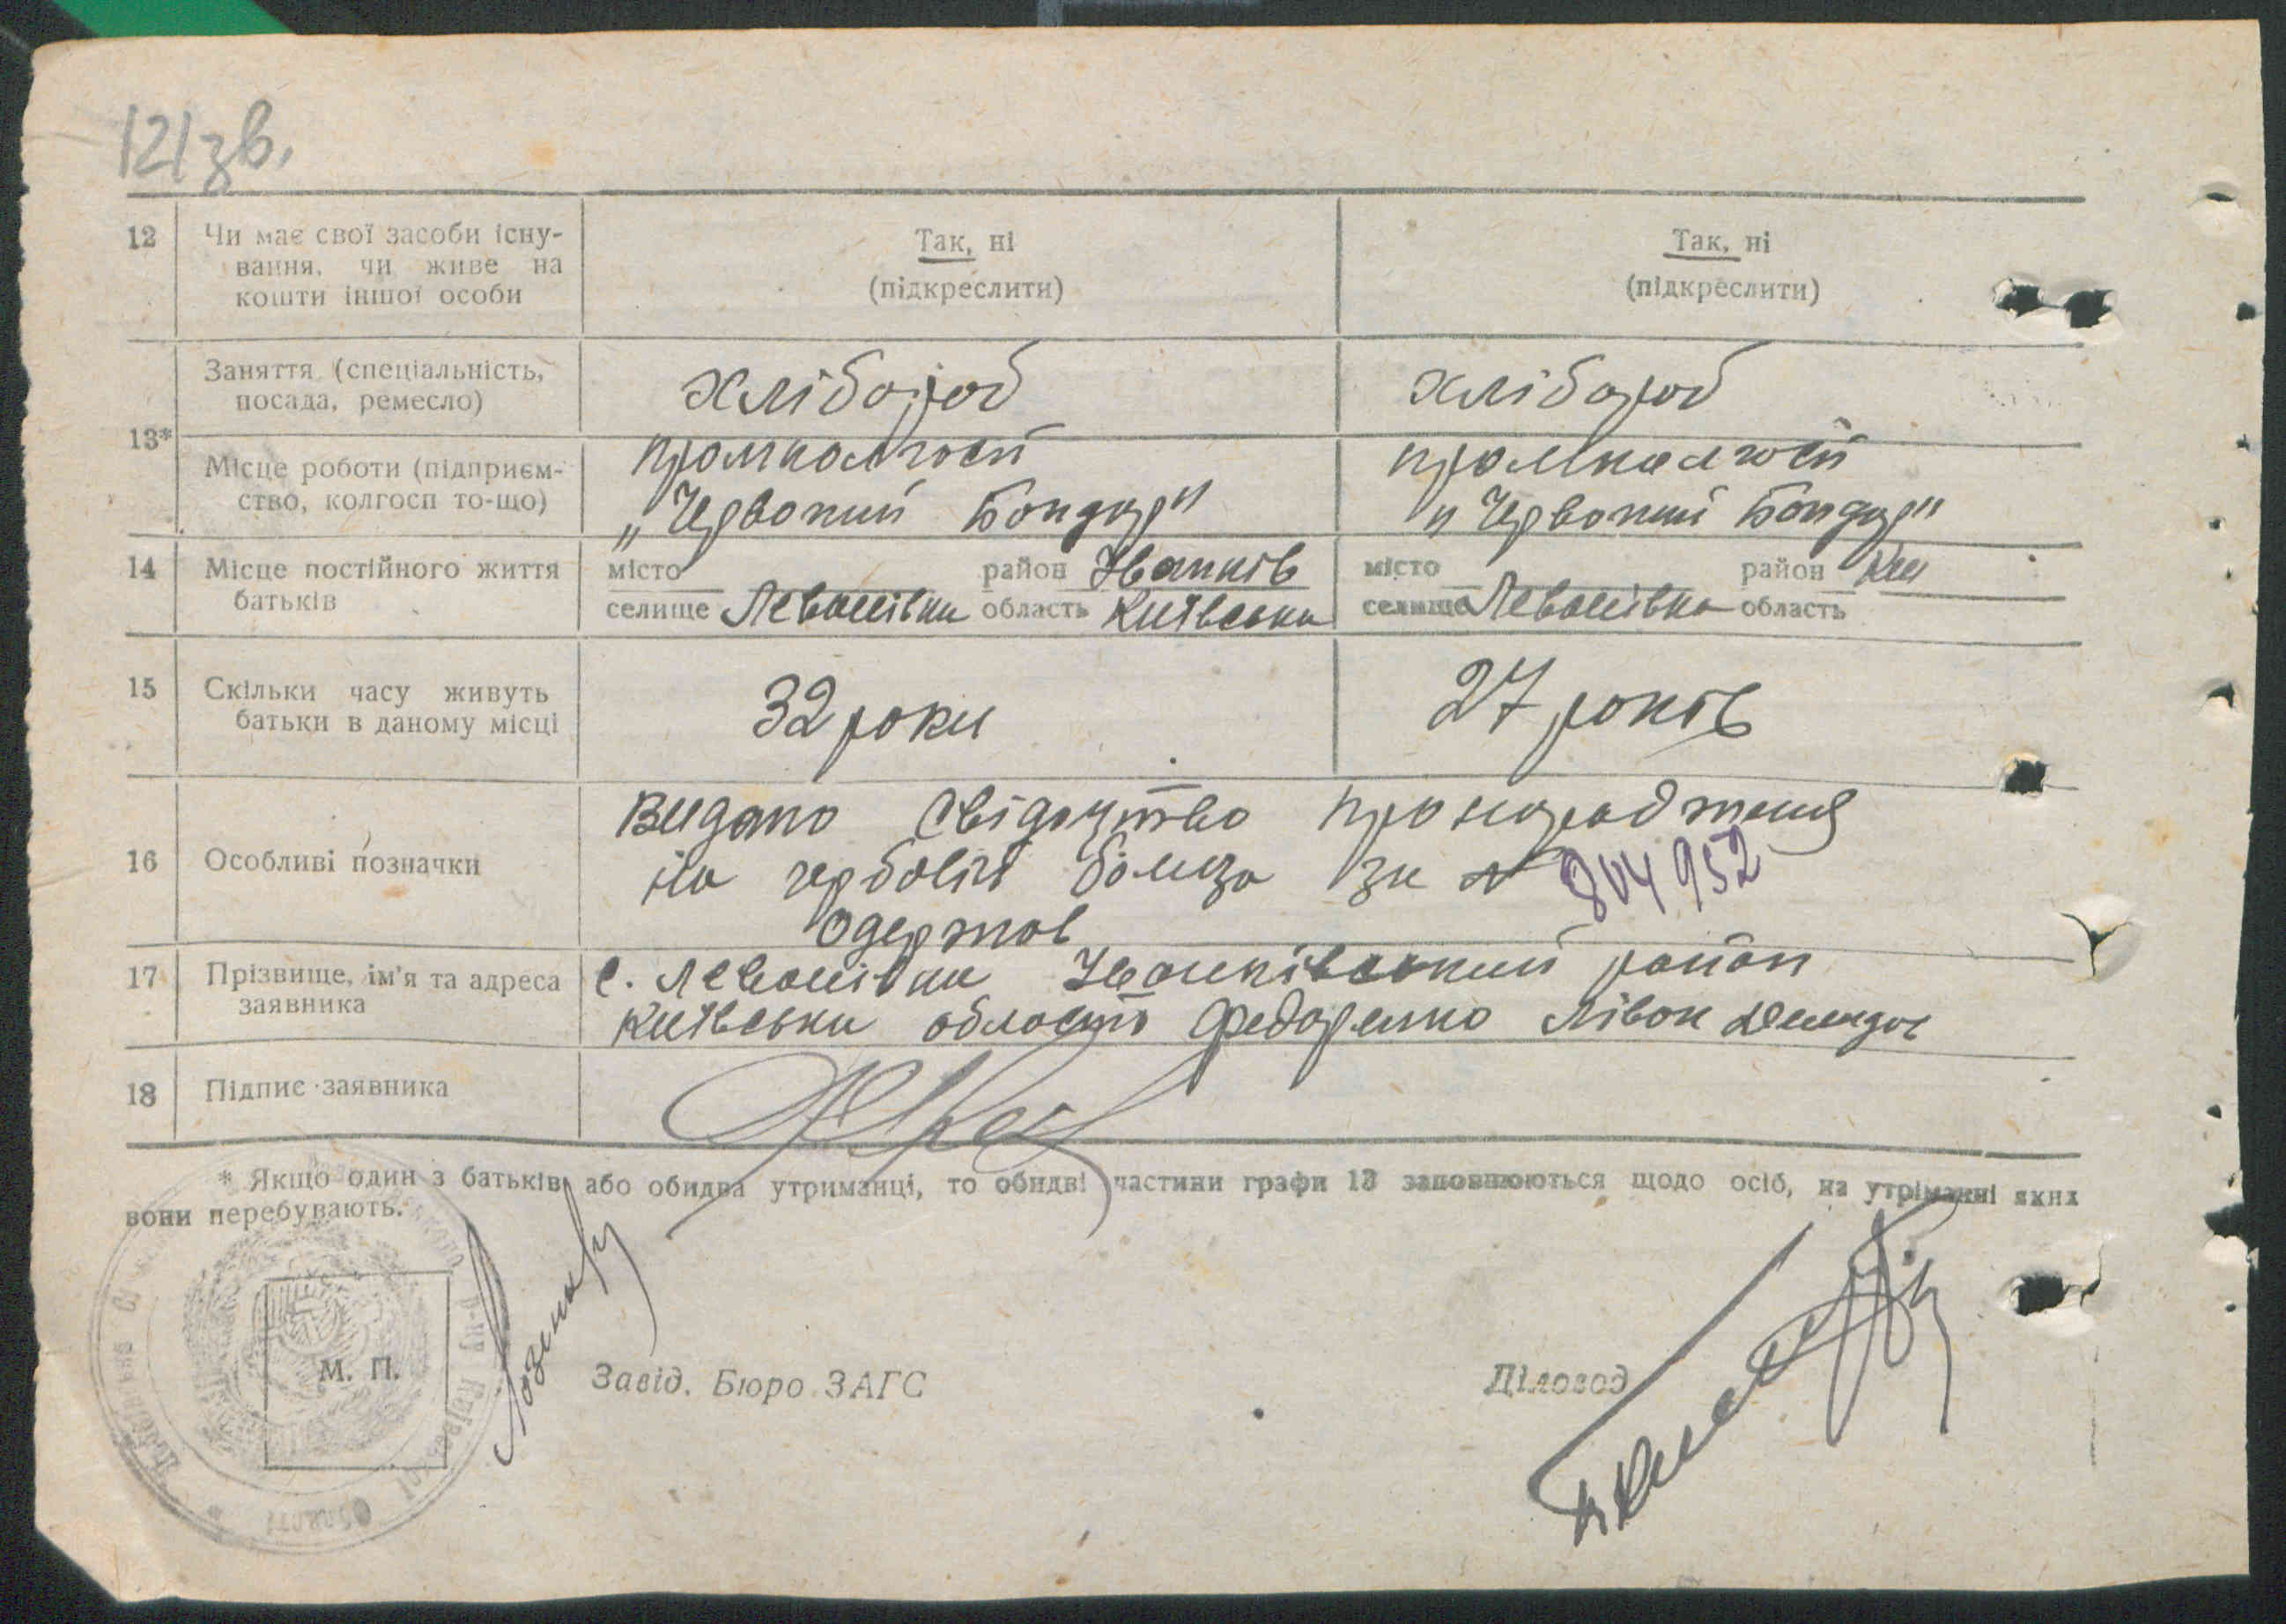 121зв.
12 Чи має свої засоби існу-
вання, чи живе на
кошти іншої особи
Так, ні
(підкреслити)
Так, ні
(підкреслити)
13*
Заняття (спеціальність,
посада, ремесло)
хлібороб
хлібороб
Місце роботи (підприєм-
ство, колгосп то-що)
промколгосп
„Червоний Бондар"
промколгосп
„Червоний Бондар"
14 Місце постійного життя
батьків
місто район Іванків
селище Левошівка область Київська
місто район
селище Левошівка область
15 Скільки часу живуть
батьки в даному місці
32 роки
27 років
16 Особливі позначки
Видано свідоцтво про народження
на гербовім за № 804952
одержав
17 Прізвище, ім'я та адреса
заявника
с. Левошівка Іванківський район
Київська область Федоренко
18 Підпис заявника
* Якщо один з батьків або обидва утриманці, то обидві частини графи 13 заповнюються щодо осіб, на утріманні яких
вони перебувають.
М. П.
Завід. Бюро ЗАГС
Діловод